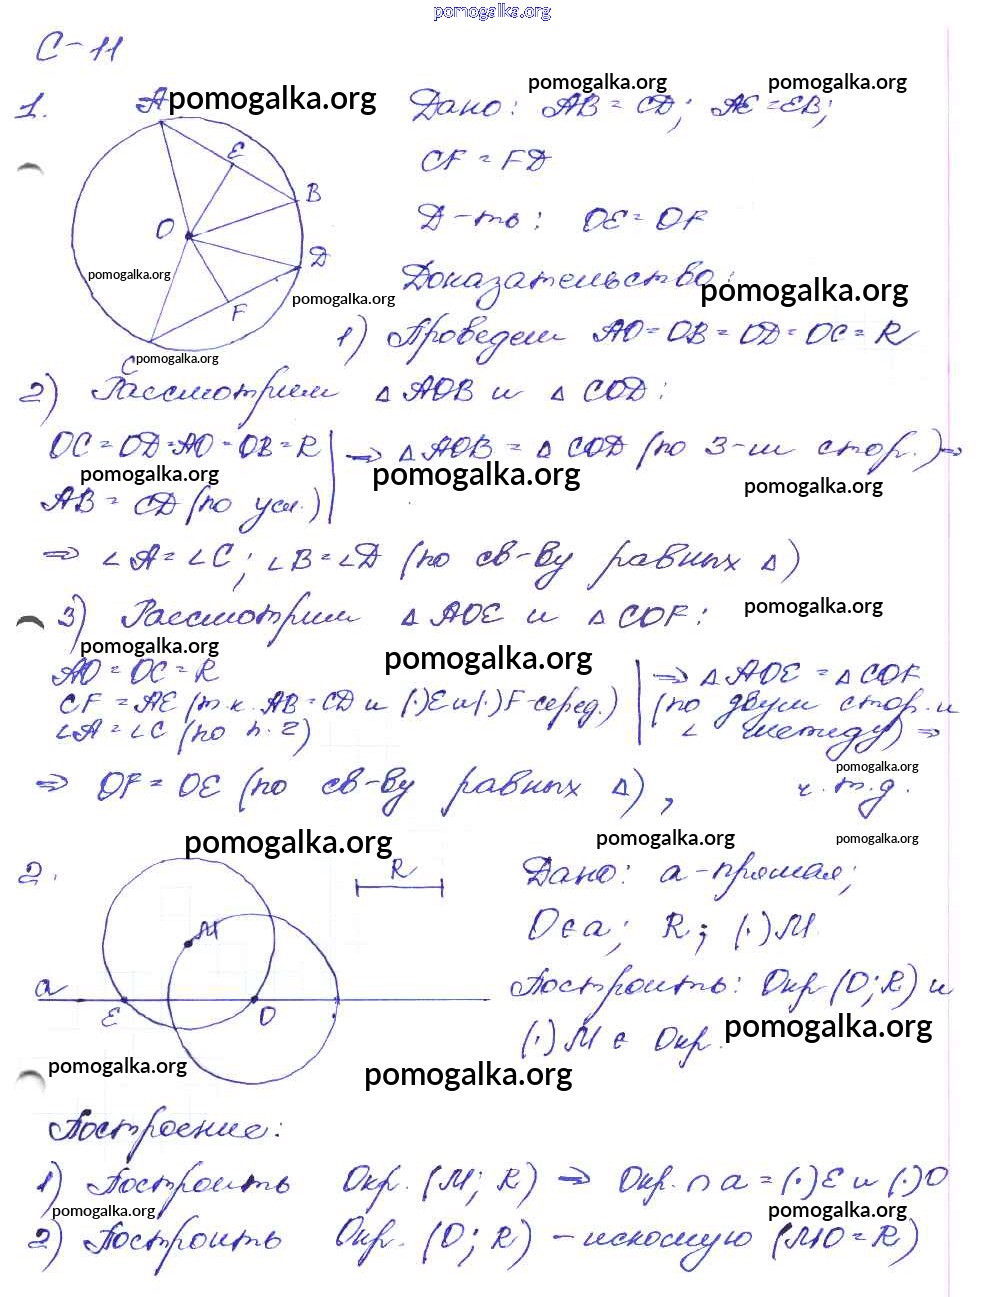 pomogalka.org
С-11
1. A pomogalka.org Дано: AB = CD; AE = EB; pomogalka.org pomogalka.org
E CF = FD
B
O Д-ть: OE = OF
D
pomogalka.org pomogalka.org Доказательство: pomogalka.org
F
1) Проведем AO = OB = OD = OC = R
C pomogalka.org
2) Рассмотрим △ AOB и △ COD:
OC = OD = AO = OB = R ⇒ △ AOB = △ COD (по 3-м стор.) ⇒
pomogalka.org pomogalka.org pomogalka.org
AB = CD (по усл.)
⇒ ∠A = ∠C; ∠B = ∠D (по св-ву равных △)
3) Рассмотрим △ AOE и △ COF: pomogalka.org
pomogalka.org pomogalka.org
AO = OC = R ⇒ △ AOE = △ COF
CF = AE (т.к. AB = CD и (·)E и (·)F-серед.) (по двум стор. и
∠A = ∠C (по п. 2) ∠ между) ⇒
pomogalka.org
⇒ OF = OE (по св-ву равных △), ч.т.д.
pomogalka.org pomogalka.org pomogalka.org
2. R Дано: a - прямая;
M O∈a; R; (·)M.
a E O Построить: Окр (O; R) и
(·) M ∈ Окр. pomogalka.org
pomogalka.org pomogalka.org
Построение:
1) Построить Окр. (M; R) ⇒ Окр. ∩ a = (·)E и (·)O
pomogalka.org pomogalka.org
2) Построить Окр. (O; R) - искомую (MO = R)